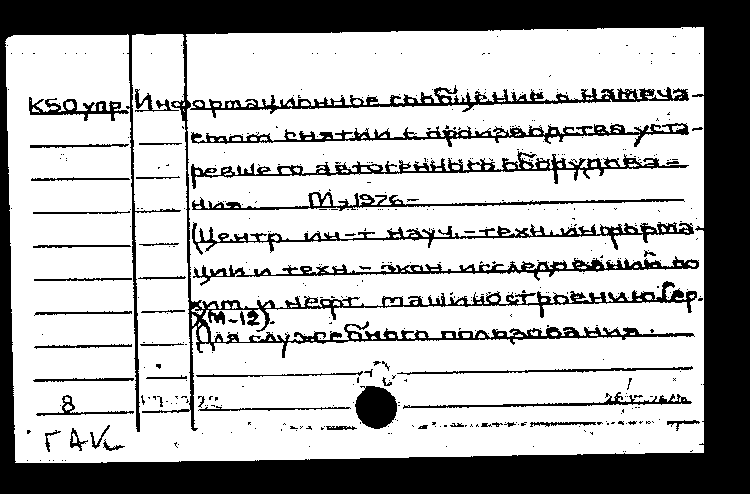 К50упр. Информационное сообщение о намеча-
емом снятии с производства уста-
ревшего автогенного оборудова-
ния. М., 1976-
(Центр. ин-т науч.-техн. информа-
ции и техн.-экон. исследований по
хим. и нефт. машиностроению. Сер.
ХМ-12).
Для служебного пользования.
8
ГАК